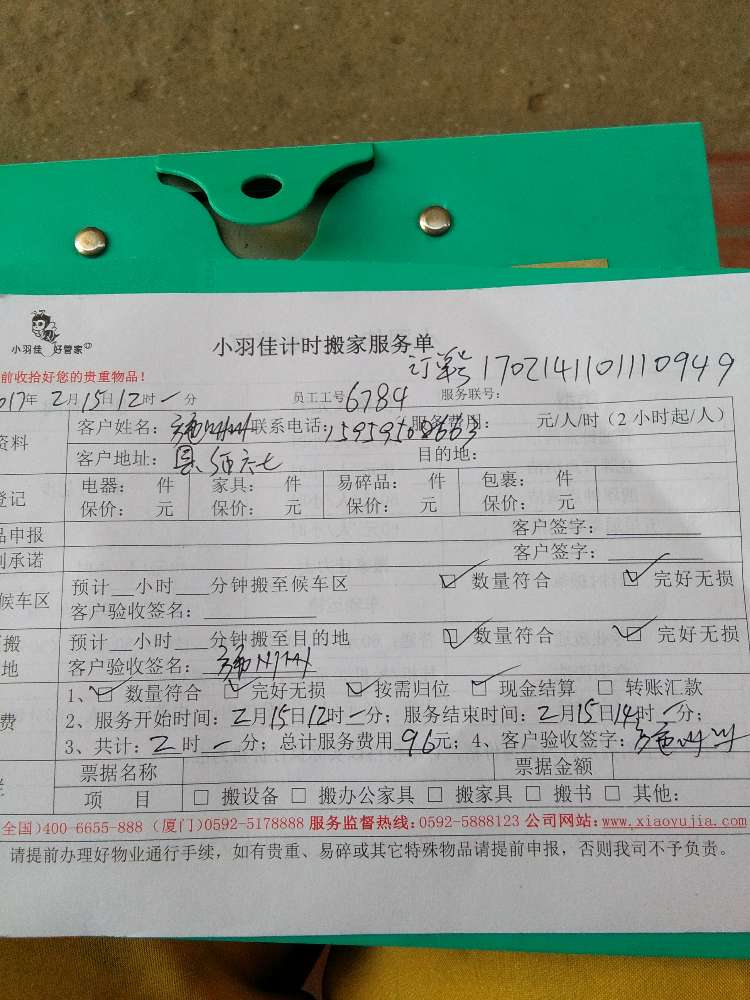 小羽佳 好管家
小羽佳计时搬家服务单
订单号 1702141101110949
前收拾好您的贵重物品！
017年 2月15日12时一分 员工工号 6784 服务联号：
资料
客户姓名： 联系电话：15959508603 服务费用： 元/人/时（2小时起/人）
客户地址： 目的地：
登记
电器： 件 家具： 件 易碎品： 件 包裹： 件
保价： 元 保价： 元 保价： 元 保价： 元
品申报 客户签字：
别承诺 客户签字：
候车区
预计__小时___分钟搬至候车区 ☑ 数量符合 ☑ 完好无损
客户验收签名：
搬地
预计__小时___分钟搬至目的地 ☑ 数量符合 ☑ 完好无损
客户验收签名：
费
1、☑ 数量符合 ☑ 完好无损 ☑ 按需归位 ☑ 现金结算 □ 转账汇款
2、服务开始时间：2月15日12时一分；服务结束时间：2月15日14时一分；
3、共计：2时一分；总计服务费用96元；4、客户验收签字：
票据名称 票据金额
项 目 □ 搬设备 □ 搬办公家具 □ 搬家具 □ 搬书 □ 其他：
全国)400-6655-888 (厦门)0592-5178888 服务监督热线:0592-5888123 公司网站:www.xiaoyujia.com
请提前办理好物业通行手续，如有贵重、易碎或其它特殊物品请提前申报，否则我司不予负责。